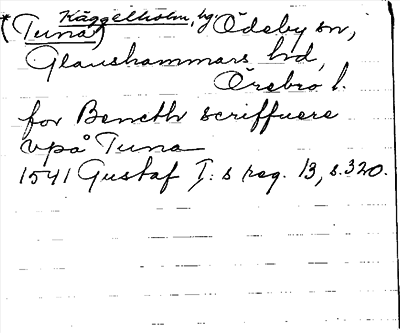 *(Tuna) Käggelholm, hg Ödeby sn,
Glanshammars hd,
Örebro l.
for Bencth scriffuere
vpå Tuna
1541 Gustaf I:s reg. 13, s. 320.